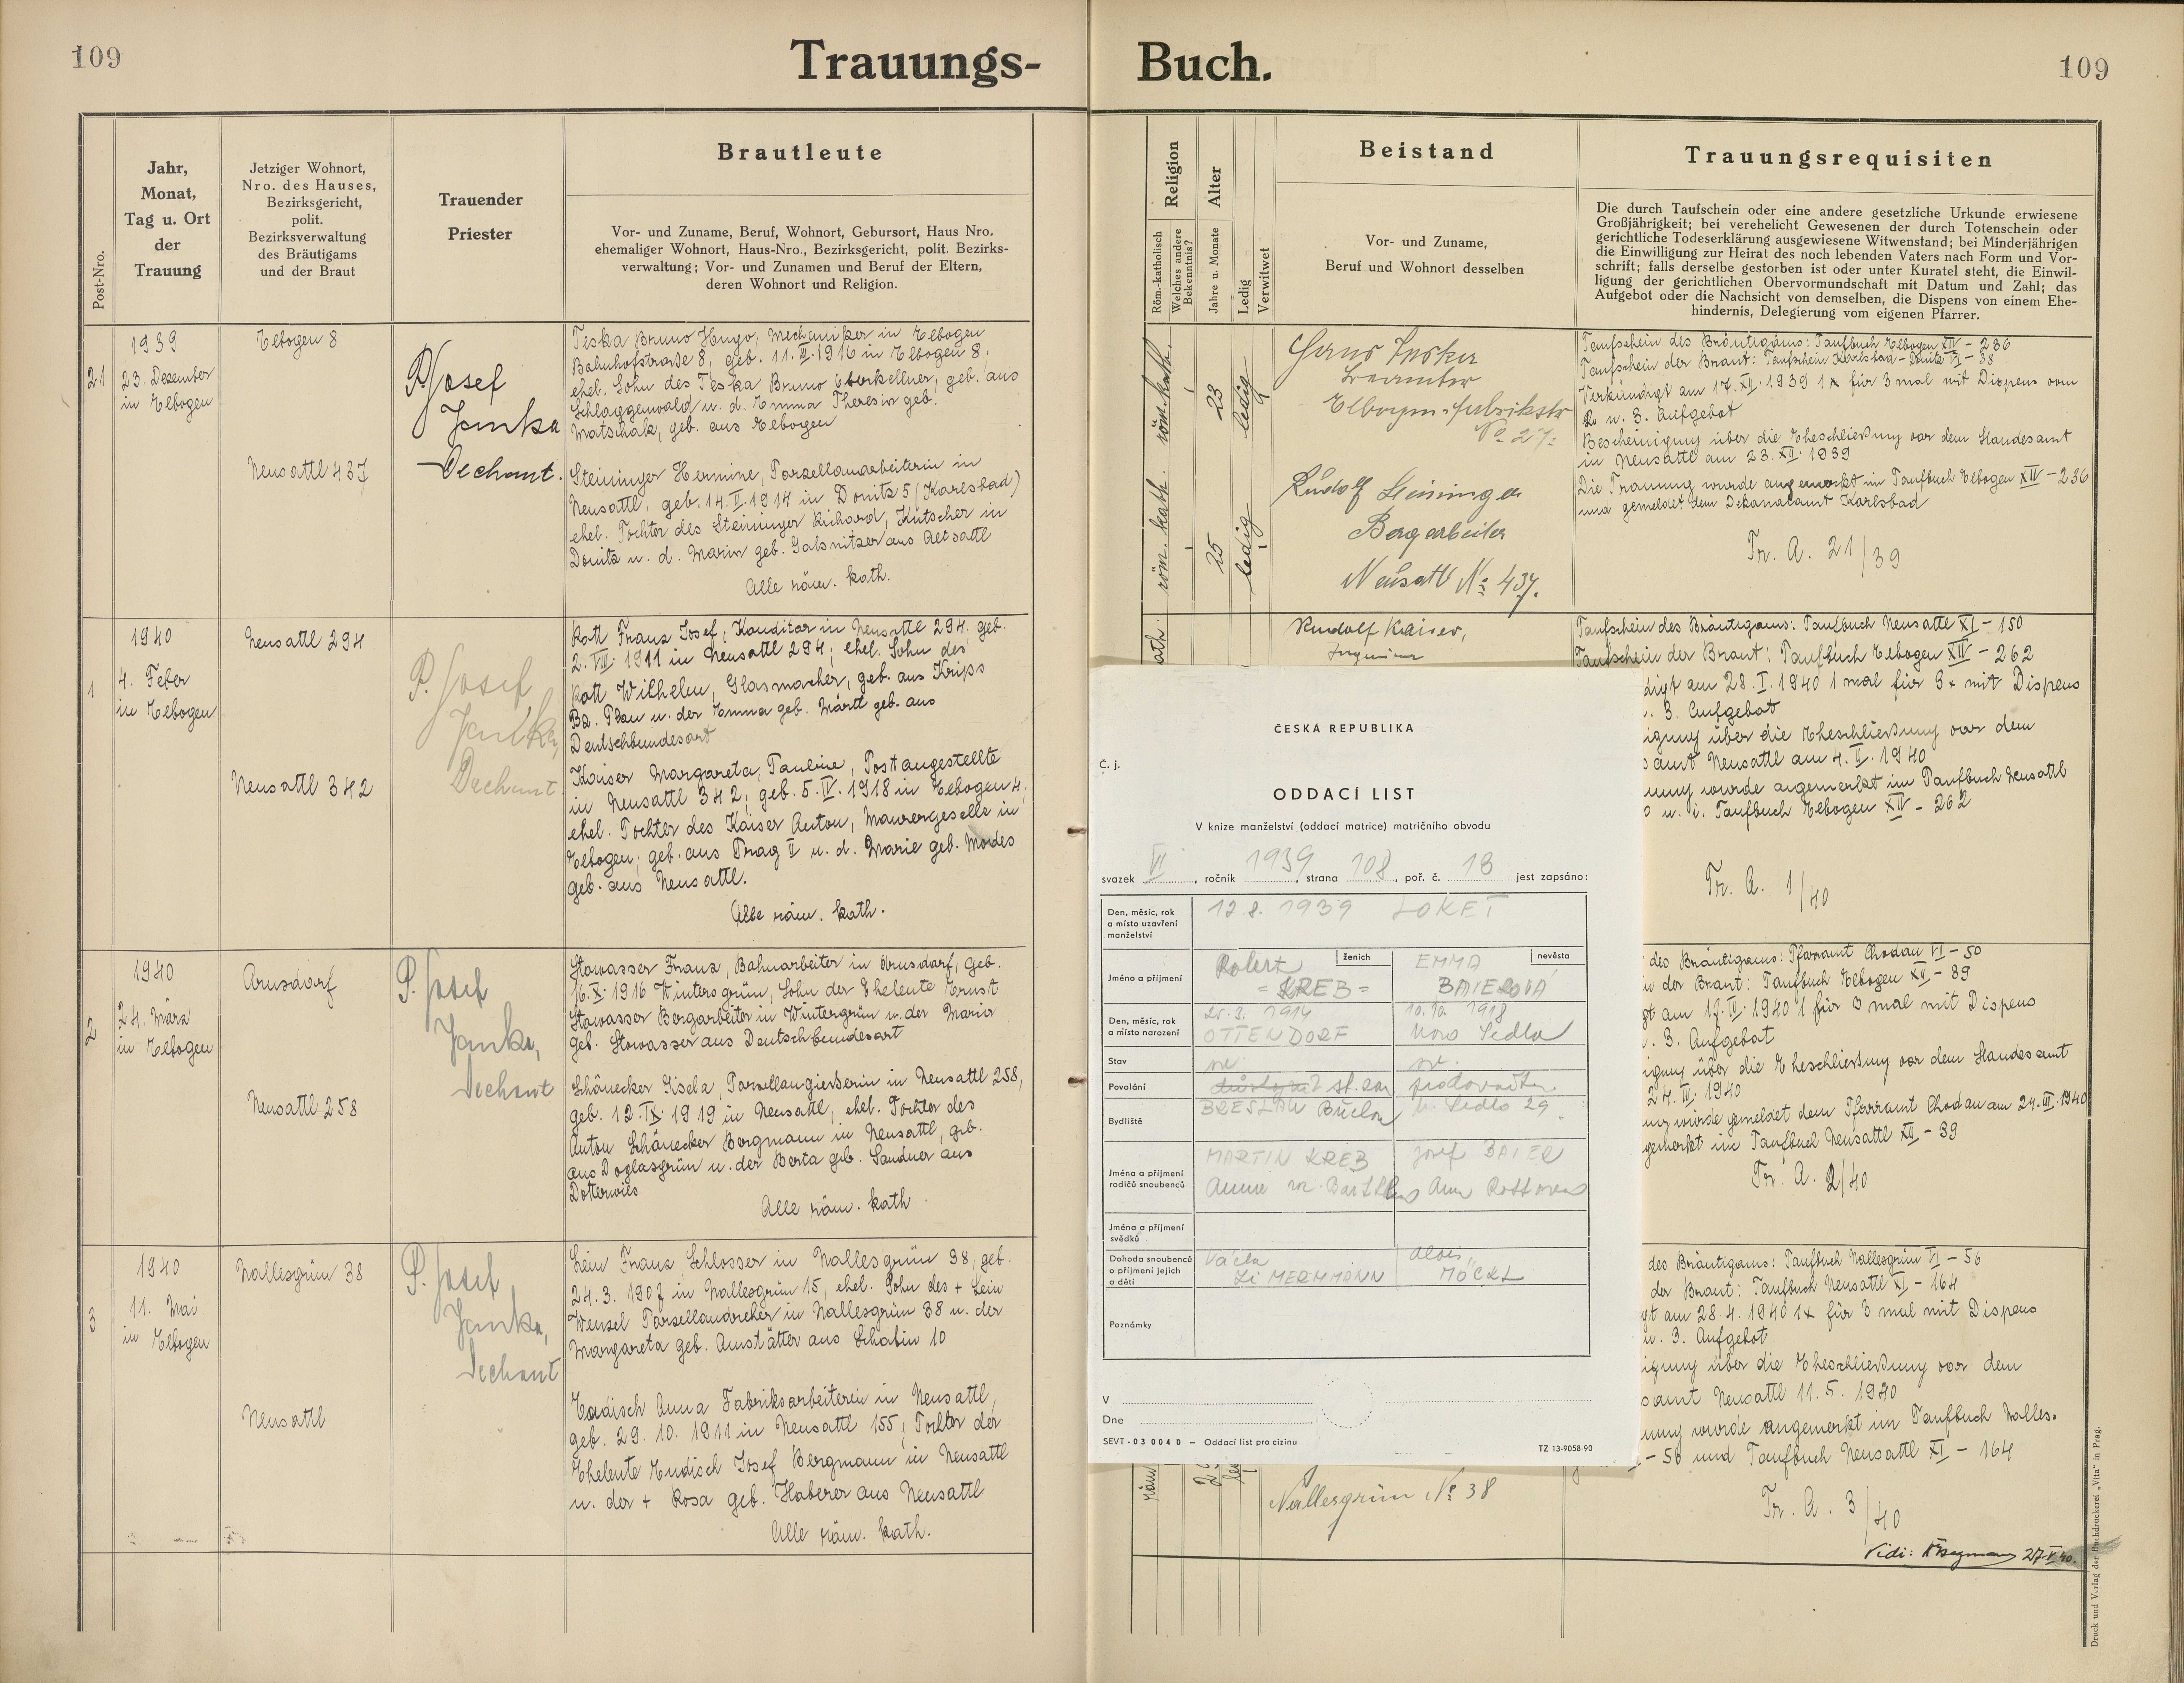 109
Trauungs-
Buch.
109
Post-Nro.
Jahr,
Monat,
Tag u. Ort
der
Trauung
Jetziger Wohnort,
Nro. des Hauses,
Bezirksgericht,
polit.
Bezirksverwaltung
des Bräutigams
und der Braut
Trauender
Priester
Brautleute
Vor- und Zuname, Beruf, Wohnort, Geburtsort, Haus Nro.
ehemaliger Wohnort, Haus-Nro., Bezirksgericht, polit. Bezirks-
verwaltung; Vor- und Zunamen und Beruf der Eltern,
deren Wohnort und Religion.
21
1939
23. Dezember
in Elbogen
Elbogen 8
Neusattl 437
P. Josef
Janka
Dechant.
Teska Bruno Hugo, Mechaniker in Elbogen
Bahnhofstraße 8, geb. 11. III. 1916 in Elbogen 8,
ehel. Sohn des Teska Bruno Oberkellner, geb. aus
Schlaggenwald u. d. Emma Theresia geb.
Matschak, geb. aus Elbogen
Steininger Hermine, Porzellanarbeiterin in
Neusattl, geb. 14. II. 1914 in Donitz 5 (Karlsbad)
ehel. Tochter des Steininger Richard, Kutscher in
Donitz u. d. Marin geb. Galsnitzer aus Altsattl
Alle röm. kath.
1
1940
4. Feber
in Elbogen
Neusattl 294
Neusattl 342
P. Josef
Janka,
Dechant
Kott Franz Josef, Konditor in Neusattl 294, geb.
2. VIII. 1911 in Neusattl 294; ehel. Sohn des
Kott Wilhelm, Glasmacher, geb. aus Krips
Bz. Plan u. der Emma geb. Märtl geb. aus
Deutschbundesort
Kaiser Margareta, Pauline, Postangestellte
in Neusattl 342, geb. 5. IV. 1918 in Elbogen 4,
ehel. Tochter des Kaiser Anton, Maurergeselle in
Elbogen; geb. aus Prag II u. d. Marie geb. Mordes
geb. aus Neusattl.
Alle röm. kath.
2
1940
24. März
in Elbogen
Arnsdorf
Neusattl 258
P. Josef
Janka,
Dechant
Stowasser Franz, Bahnarbeiter in Arnsdorf, geb.
16. X. 1916 Wintersgrün, Sohn der Eheleute Ernst
Stowasser Bergarbeiter in Wintergrün u. der Maria
geb. Stowasser aus Deutschbundesort
Schönecker Gisela, Porzellangießerin in Neusattl 258,
geb. 12. IX. 1919 in Neusattl, ehel. Tochter des
Anton Schönecker Bergmann in Neusattl, geb.
aus Doglasgrün u. der Berta geb. Sandner aus
Dotterwies
Alle röm. kath.
3
1940
11. Mai
in Elbogen
Nallesgrün 38
Neusattl
P. Josef
Janka,
Dechant
Lein Franz, Schlosser in Nallesgrün 38, geb.
24. 3. 1907 in Nallesgrün 15, ehel. Sohn des + Lein
Wenzel Porzellandreher in Nallesgrün 38 u. der
Margareta geb. Amstätter aus Schabin 10
Endisch Anna Fabriksarbeiterin in Neusattl,
geb. 29. 10. 1911 in Neusattl 155; Tochter der
Eheleute Endisch Josef Bergmann in Neusattl
u. der + Rosa geb. Haberer aus Neusattl
Alle röm. kath.
Religion
Röm.-katholisch
Welches andere
Bekenntnis?
Alter
Jahre u. Monate
Ledig
Verwitwet
Beistand
Vor- und Zuname,
Beruf und Wohnort desselben
Trauungsrequisiten
Die durch Taufschein oder eine andere gesetzliche Urkunde erwiesene
Großjährigkeit; bei verehelicht Gewesenen der durch Totenschein oder
gerichtliche Todeserklärung ausgewiesene Witwenstand; bei Minderjährigen
die Einwilligung zur Heirat des noch lebenden Vaters nach Form und Vor-
schrift; falls derselbe gestorben ist oder unter Kuratel steht, die Einwil-
ligung der gerichtlichen Obervormundschaft mit Datum und Zahl; das
Aufgebot oder die Nachsicht von demselben, die Dispens von einem Ehe-
hindernis, Delegierung vom eigenen Pfarrer.
röm. kath.
23
ledig
röm. kath.
25
ledig
No 27.
Rudolf Steininger
Bergarbeiter
Neusattl No 437.
Taufschein des Bräutigams: Taufbuch Elbogen XII - 236
Taufschein der Braut: Taufschein Karlsbad - Donitz VI - 38
Verkündigt am 17. XII. 1939 1x für 3 mal mit Dispens vom
2. u. 3. Aufgebot
Bescheinigung über die Eheschließung vor dem Standesamt
in Neusattl am 23. XII. 1939
Die Trauung wurde angemerkt im Taufbuch Elbogen XII - 236
und gemeldet dem Dekanalamt Karlsbad
Tr. A. 21/39
ath.
Rudolf Kaiser,
Ingenieur
Taufschein des Bräutigams: Taufbuch Neusattl XI - 150
Taufschein der Braut: Taufbuch Elbogen XIV - 262
digt am 28. I. 1940 1 mal für 3x mit Dispens
. 3. Aufgebot
igung über die Eheschließung vor dem
samt Neusattl am 4. II. 1940
uung wurde angemerkt im Taufbuch Neusattl
0 u. i. Taufbuch Elbogen XIV - 262
Tr. A. 1/40
des Bräutigams: Pfarramt Chodau VI - 50
n der Braut: Taufbuch Elbogen XII - 39
gt am 17. III. 1940 1 für 3 mal mit Dispens
. 3. Aufgebot
igung über die Eheschließung vor dem Standesamt
24. III. 1940
ung wurde gemeldet dem Pfarramt Chodau am 24. III. 1940
gemerkt im Taufbuch Neusattl XII - 39
Tr. A. 2/40
des Bräutigams: Taufbuch Nallesgrün VI - 56
der Braut: Taufbuch Neusattl XI - 164
gt am 28. 4. 1940 1x für 3 mal mit Dispens
u. 3. Aufgebot
igung über die Eheschließung vor dem
samt Neusattl 11. 5. 1940
uung wurde angemerkt im Taufbuch Nalles-
- 56 und Taufbuch Neusattl XI - 164
Tr. A. 3/40
Nallesgrün No 38
röm
Vidi: 27. V 40.
Druck und Verlag der Buchdruckerei „Vita" in Prag.
ČESKÁ REPUBLIKA
Č. j.
ODDACÍ LIST
V knize manželství (oddací matrice) matričního obvodu
svazek VI, ročník 1939, strana 108, poř. č. 18 jest zapsáno:
Den, měsíc, rok
a místo uzavření
manželství
12. 8. 1939 LOKET
Jméno a příjmení
ženich
nevěsta
Robert
= KREB =
EMMA
BAIEROVÁ
Den, měsíc, rok
a místo narození
3. 1914
OTTENDORF
10. 10. 1918
Nové Sedlo
Stav
Povolání
Bydliště
BRESLAU
N. Sedlo 29
Jména a příjmení
rodičů snoubenců
MARTIN KREB
Josef BAIER
Jména a příjmení
svědků
Dohoda snoubenců
o příjmení jejich
a dětí
ZIMERMMANN
Alois
MÖCKL
Poznámky
V
Dne
SEVT - 03 004 0 – Oddací list pro cizinu
TZ 13-9058-90